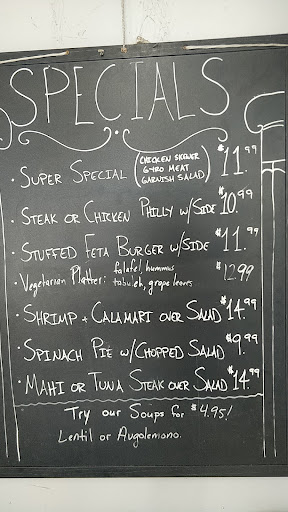 SPECIALS
• SUPER SPECIAL (CHICKEN SKEWER $11.99
GYRO MEAT
GARNISH SALAD)
• STEAK OR CHICKEN PHILLY W/SIDE $10.99
• STUFFED FETA BURGER W/SIDE $11.99
• Vegetarian Platter: falafel, hummus $12.99
tabuleh, grape leaves
• SHRIMP + CALAMARI OVER SALAD $14.99
• SPINACH PIE W/CHOPPED SALAD $9.99
• MAHI OR TUNA STEAK OVER SALAD $14.99
Try our Soups for $4.95!
Lentil or Avgolemono.